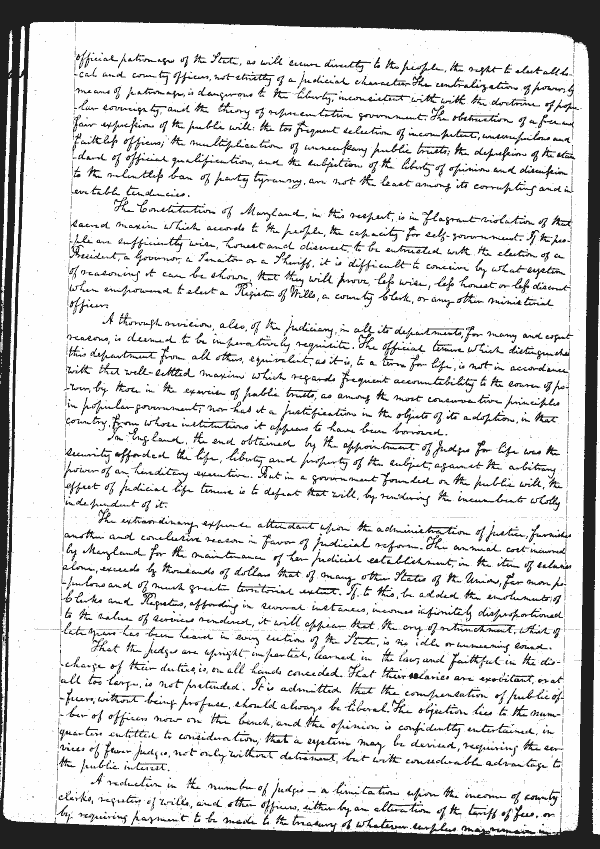 official patronage of the State, as will secure directly to the people, the right to elect all lo-
cal and county officers, not strictly of a judicial character. The centralization of power, by
means of patronage, is dangerous to the liberty, inconsistent with with the doctrine of popu-
lar sovereignty, and the theory of representative government. The obstruction of a free and
fair expression of the public will; the too frequent selection of incompetent, unscrupulous and
faithless officers; the multiplication of unnecessary public trusts; the depression of the stan-
dard of official qualification, and the subjection of the liberty of opinion and discussion
to the relentless ban of party tyranny, are not the least among its corrupting and in-
evitable tendencies.
The Constitution of Maryland, in this respect, is in flagrant violation of that
sacred maxim which accords to the people, the capacity for self-government. If the peo-
ple are sufficiently wise, honest and discreet, to be entrusted with the election of a
President, a Governor, a Senator or a Sheriff, it is difficult to conceive by what system
of reasoning it can be shown, that they will prove, less wise, less honest or less discreet
when empowered to elect a Register of Wills, a county Clerk, or any other ministerial
officer.
A thorough revision, also, of the judiciary, in all its departments, for many and cogent
reasons, is deemed to be imperatively requisite. The official tenure which distinguishes
this department from all others, equivalent, as it is, to a term for life, is not in accordance
with that well-settled maxim which regards frequent accountability to the source of po-
wer, by those in the exercise of public trusts, as among the most conservative principles
in popular government; nor has it a justification in the objects of its adoption, in that
country, from whose institutions it appears to have been borrowed.
In England, the end obtained by the appointment of Judges for life was the
security afforded the life, liberty and property of the subject, against the arbitrary
power of an hereditary executive. But in a government founded on the public will, the
effect of judicial life tenure is to defeat that will, by rendering the incumbents wholly
independent of it.
The extraordinary expense attendant upon the administration of justice, furnishes
another and conclusive reason in favor of judicial reform. The annual cost incurred
by Maryland for the maintenance of her judicial establishment, in the item of salaries
alone, exceeds by thousands of dollars that of many other States of the Union, far more po-
pulous and of much greater territorial extent. If, to this, be added the emoluments of
Clerks and Registers, affording in several instances, incomes infinitely disproportioned
to the value of services rendered, it will appear that the cry of retrenchment, which of
late years has been heard in every section of the State, is no idle or unmeaning sound.
That the judges are upright, impartial, learned in the law, and faithful in the dis-
charge of their duties, is, on all hands conceded. That their salaries are exorbitant, or at
all too large, is not pretended. It is admitted that the compensation of public of-
ficers, without being profuse, should always be liberal. The objection lies to the num-
ber of officers now on the bench, and the opinion is confidently entertained, in
quarters entitled to consideration, that a system may be devised, requiring the ser-
vices of fewer judges, not only without detriment, but with considerable advantage to
the public interest.
A reduction in the number of judges — a limitation upon the income of county
clerks, registers of wills, and other officers, either by an alteration of the tariff of fees, or
by requiring payment to be made to the treasury of whatever surplus may remain in